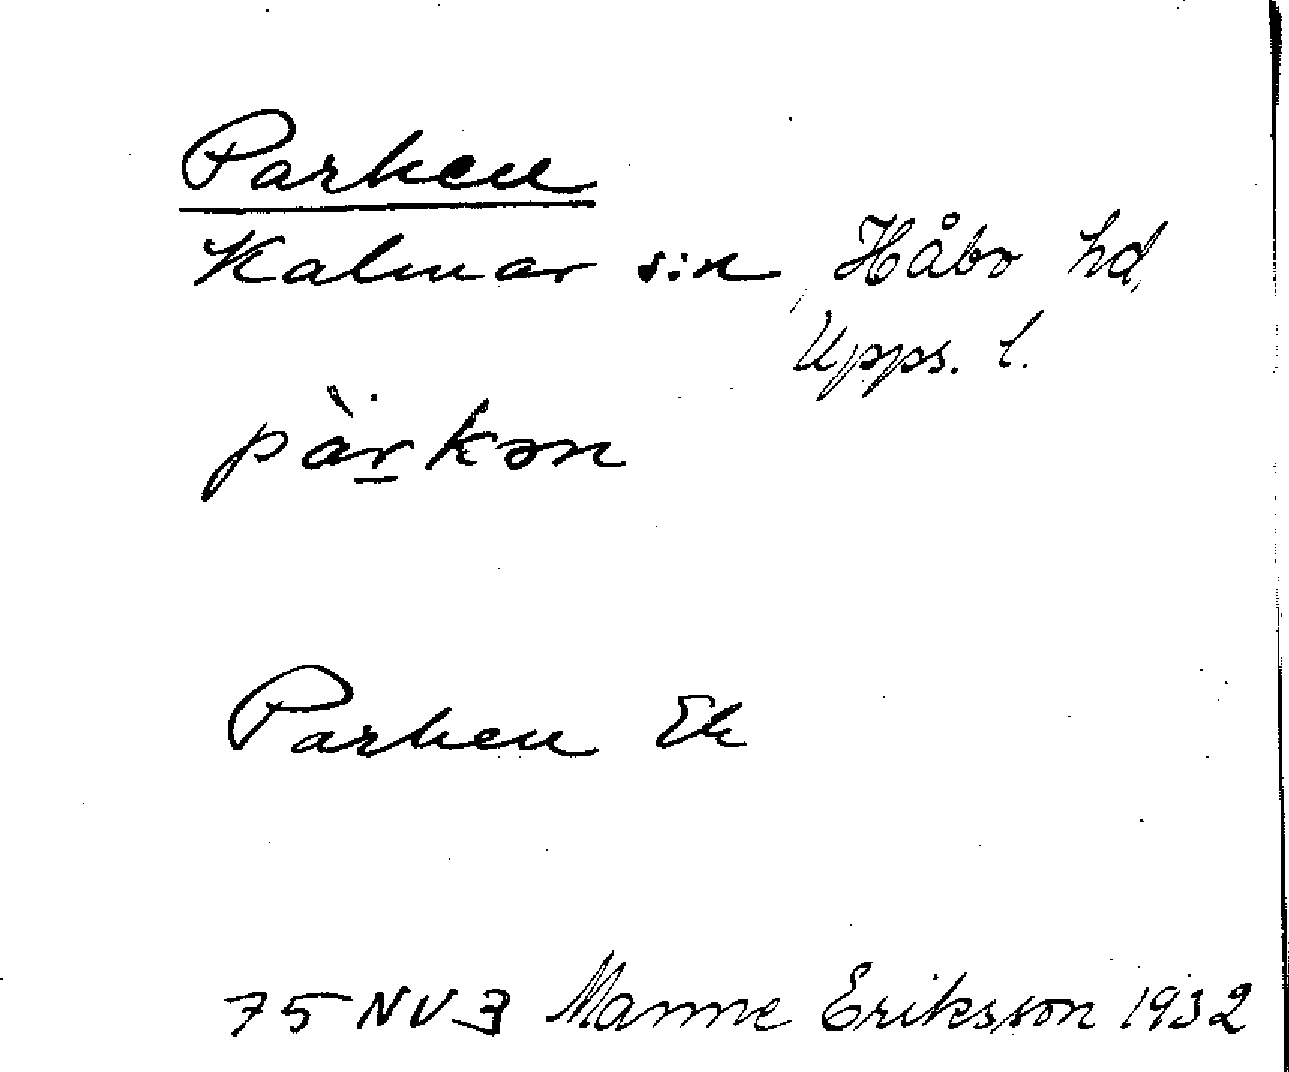 Parken
Kalmar s:n, Håbo hd,
Upps. l.
pàrkən
Parken Ek
75 NV 3 Manne Eriksson 1932